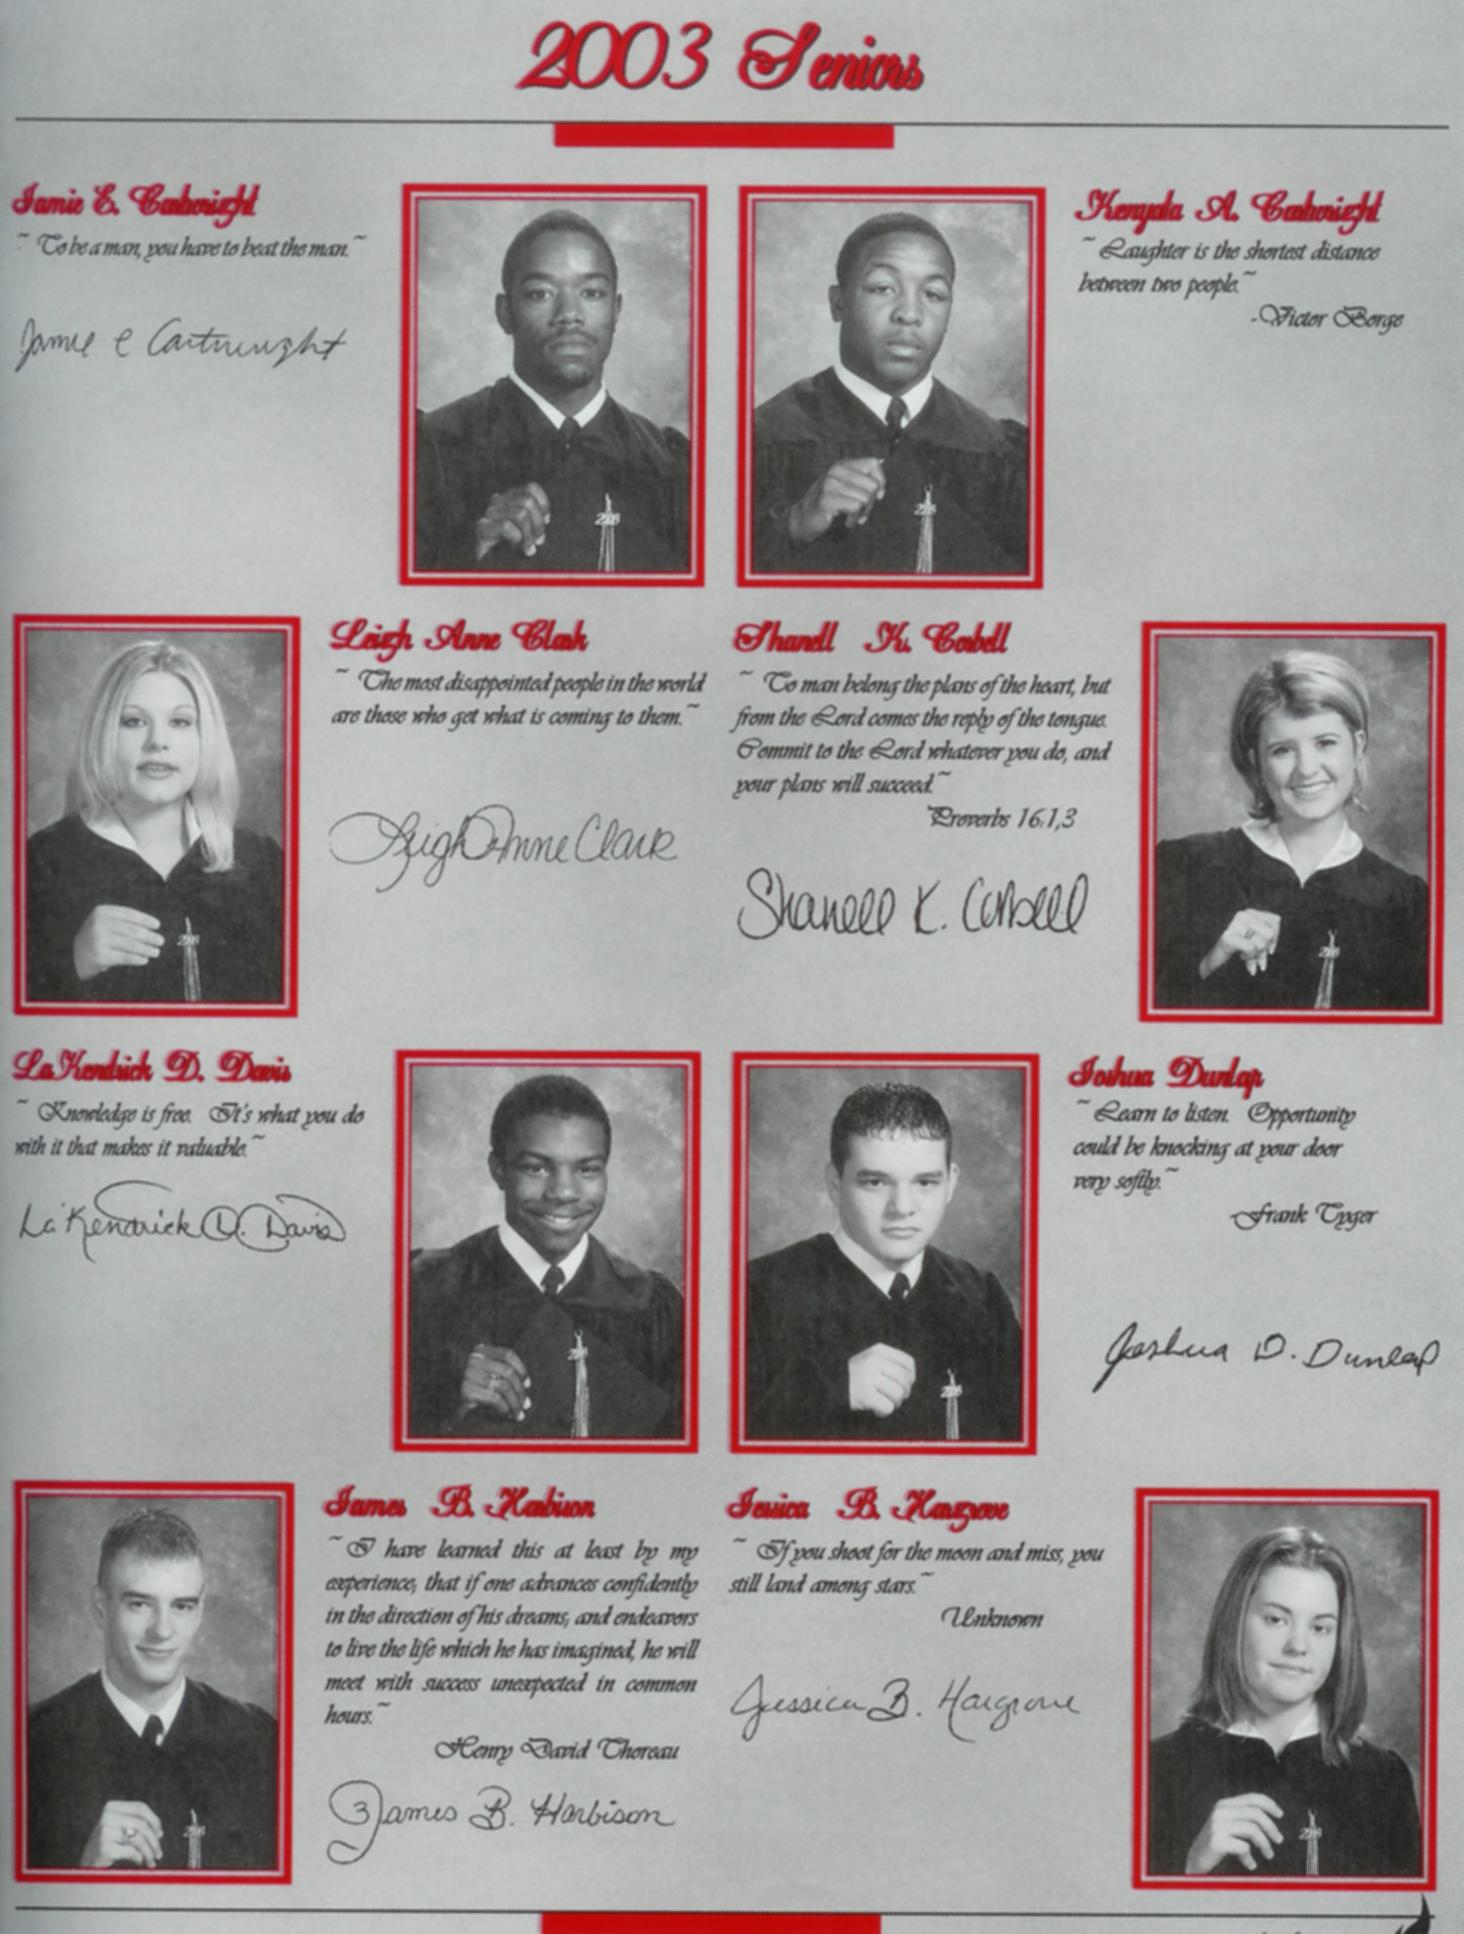 2003 Seniors
Jamie E. Cartwright
~ To be a man, you have to beat the man.~
Jamie e Cartwright
Kenyata A. Cartwright
~ Laughter is the shortest distance
between two people.~
-Victor Borge
Leigh Anne Clark
~ The most disappointed people in the world
are those who get what is coming to them.~
Leigh Anne Clark
Shanell K. Corbell
~ To man belong the plans of the heart, but
from the Lord comes the reply of the tongue.
Commit to the Lord whatever you do, and
your plans will succeed.~
Proverbs 16:1,3
Shanell K. Corbell
La'Kendrick D. Davis
~ Knowledge is free. It's what you do
with it that makes it valuable.~
La'Kendrick D. Davis
Joshua Dunlap
~ Learn to listen. Opportunity
could be knocking at your door
very softly.~
-Frank Tyger
Joshua D. Dunlap
James B. Harbison
~ I have learned this at least by my
experience, that if one advances confidently
in the direction of his dreams, and endeavors
to live the life which he has imagined, he will
meet with success unexpected in common
hours.~
Henry David Thoreau
James B. Harbison
Jessica B. Hargrove
~ If you shoot for the moon and miss, you
still land among stars.~
Unknown
Jessica B. Hargrove